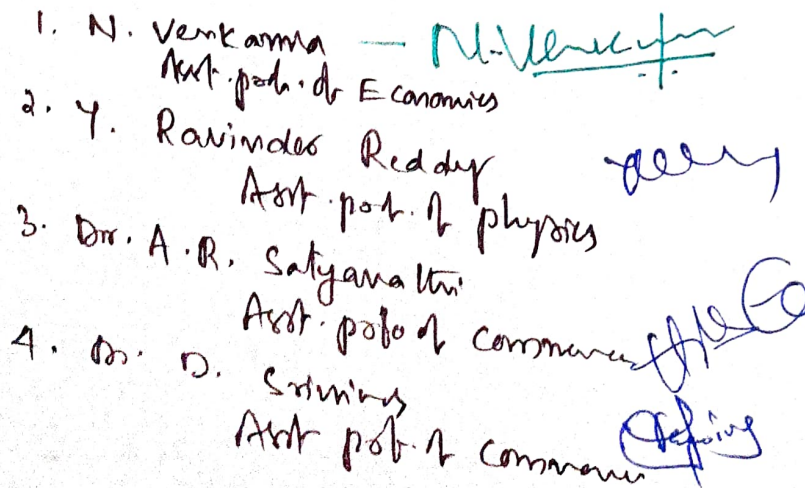 1. N. Venkanna — N. Venkanna
Asst. prof. of Economics
2. Y. Ravinder Reddy
Asst. prof. of physics
3. Dr. A.R. Satyavathi
Asst. prof. of commerce
4. Dr. D. Srinivas
Asst prof. of commerce